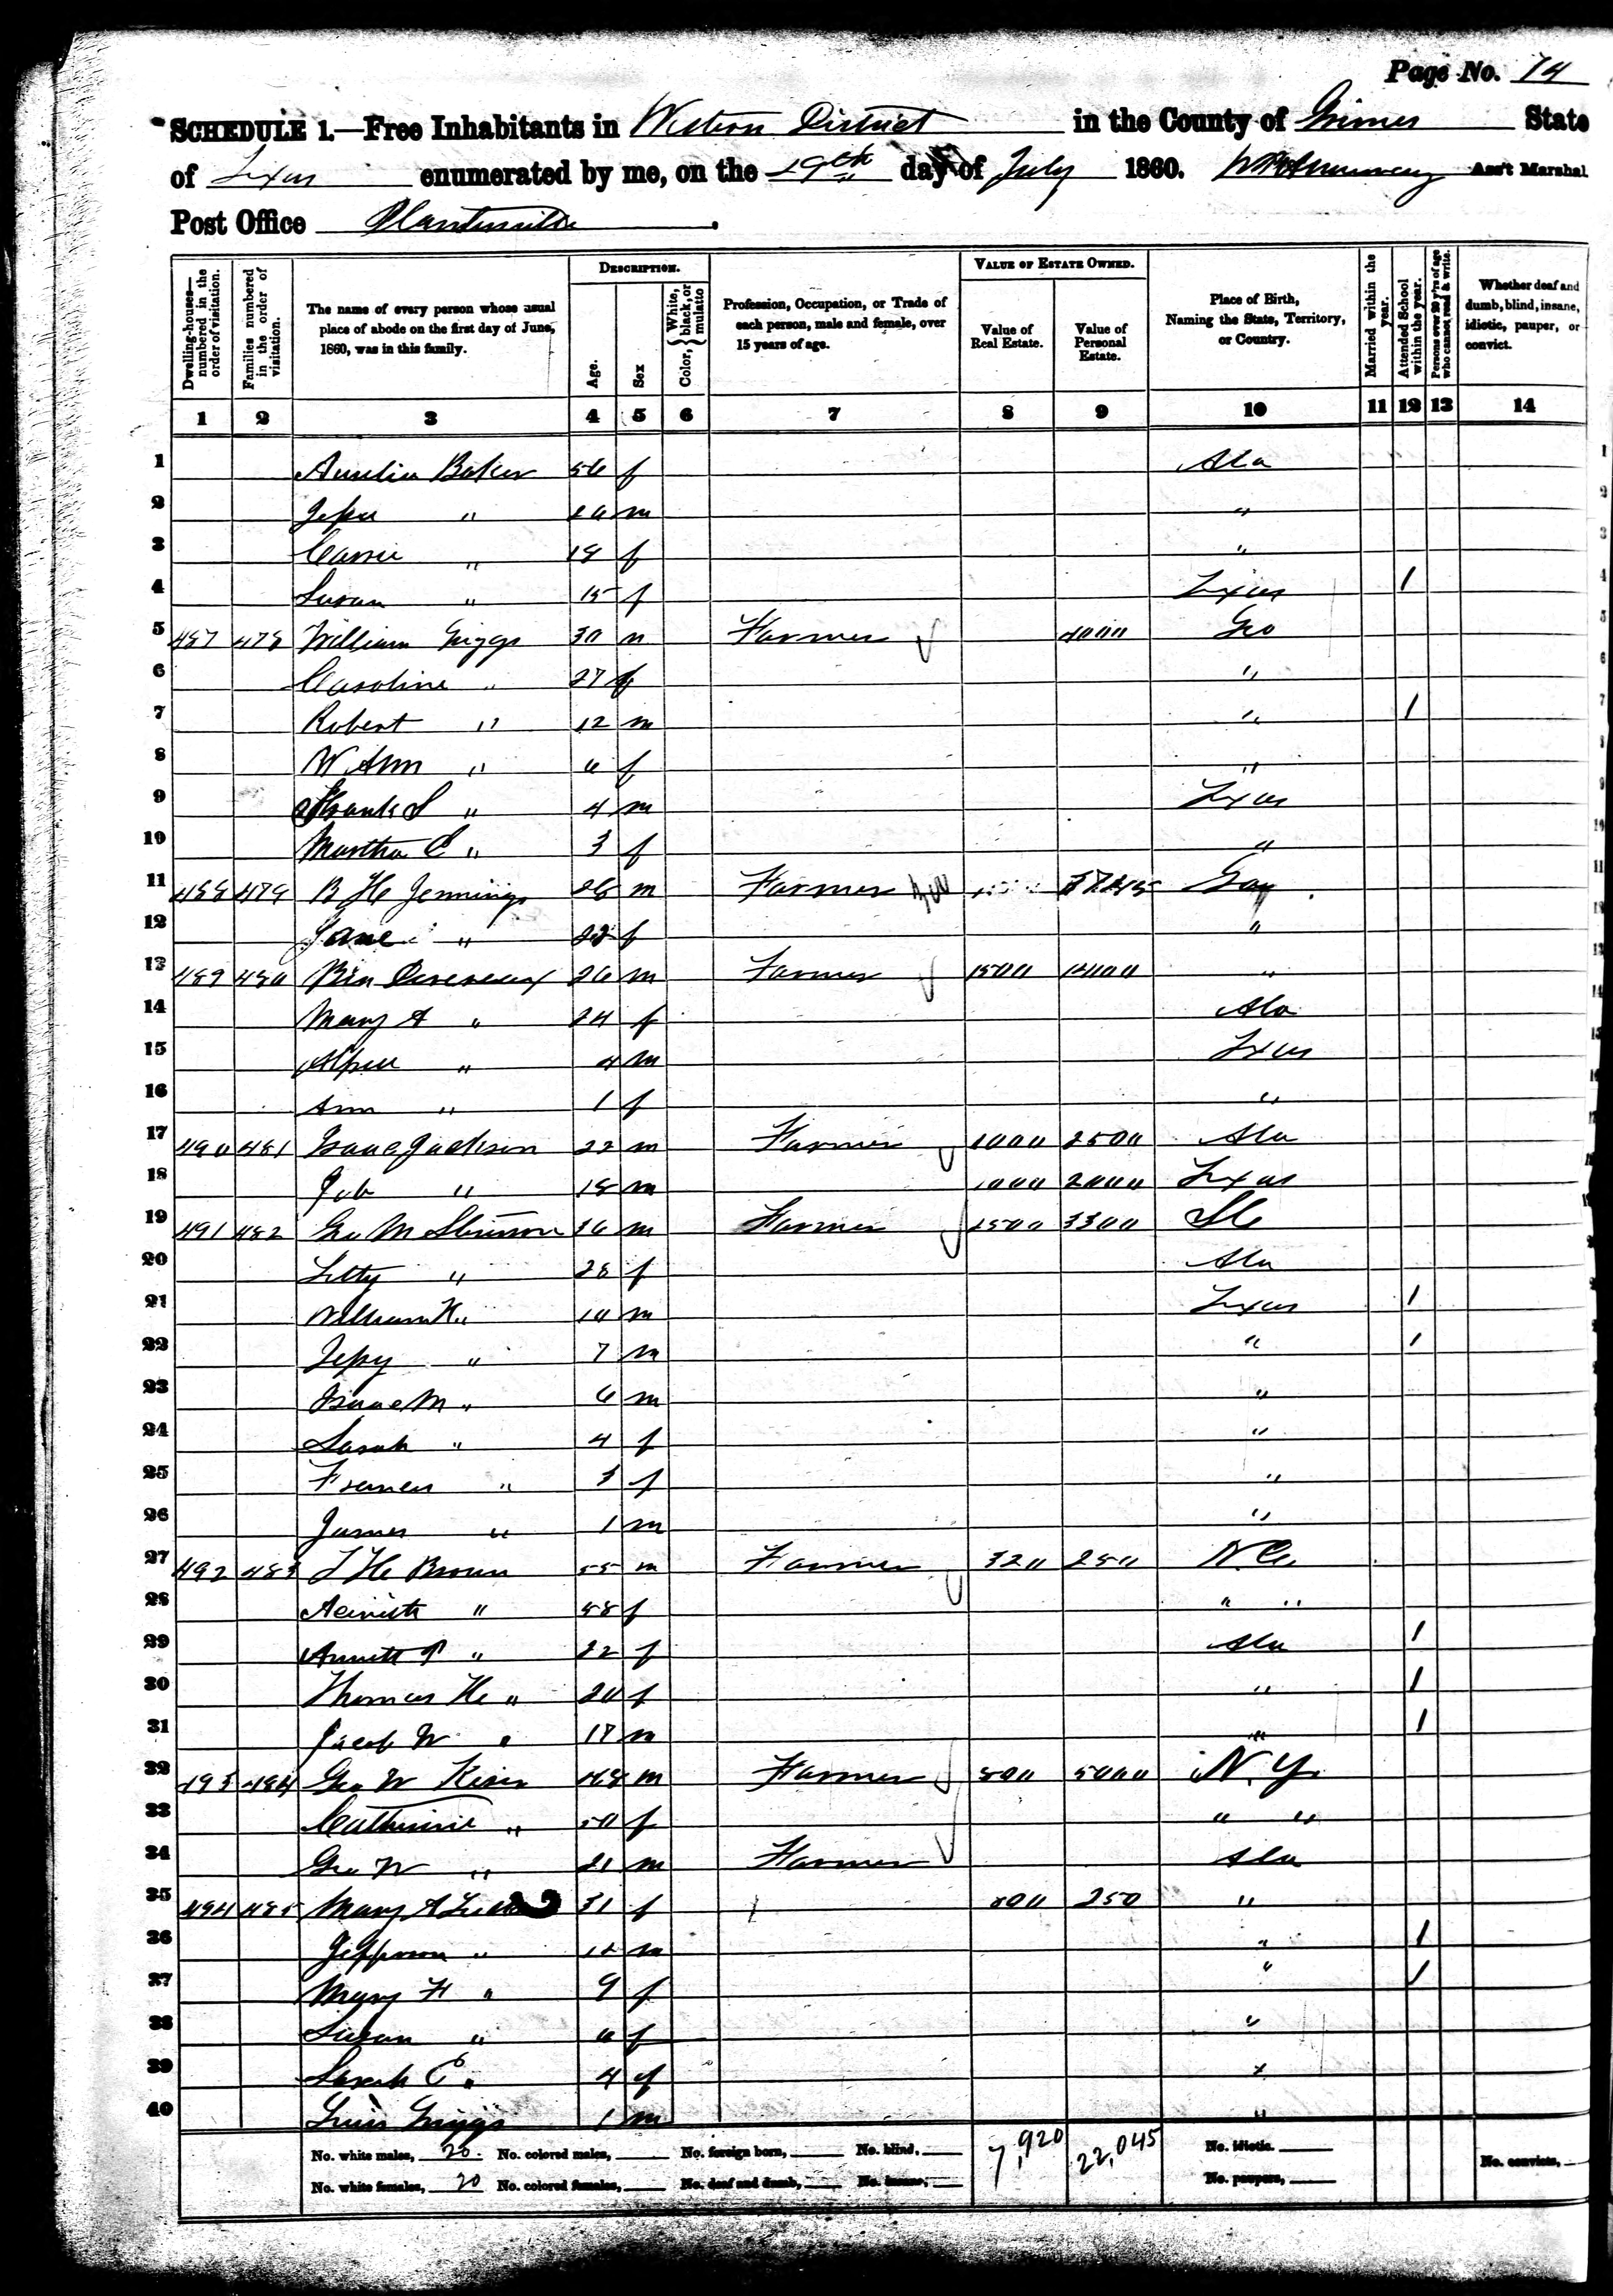 Page No. 74
SCHEDULE 1.—Free Inhabitants in Western District in the County of Grimes State
of Texas enumerated by me, on the 19th day of July 1860. Ass't Marshal
Post Office Plantersville.
Dwelling-houses—numbered in the order of visitation.
Families numbered in the order of visitation.
The name of every person whose usual place of abode on the first day of June, 1860, was in this family.
DESCRIPTION.
Age.
Sex
Color, { White, black, or mulatto
Profession, Occupation, or Trade of each person, male and female, over 15 years of age.
VALUE OF ESTATE OWNED.
Value of Real Estate.
Value of Personal Estate.
Place of Birth, Naming the State, Territory, or Country.
Married within the year.
Attended School within the year.
Persons over 20 y'rs of age who cannot read & write.
Whether deaf and dumb, blind, insane, idiotic, pauper, or convict.
1 2 3 4 5 6 7 8 9 10 11 12 13 14
1 Aurelia Baker 56 f Ala
2 Jesse " m "
3 Carrie " 18 f "
4 Susan " 15 f Texas 1
5 487 478 William Griggs 30 m Farmer 4000 Geo
6 Caroline " 27 f "
7 Robert " 12 m " 1
8 W Ann " 6 f "
9 Frank S " 4 m Texas
10 Martha C " 3 f "
11 488 479 B H Jennings 28 m Farmer
12 Jane " f "
13 489 480 26 m Farmer 1500 "
14 Mary A " 24 f Ala
15 " 4 m Texas
16 Ann " 1 f "
17 490 481 Isaac Jackson 22 m Farmer 1000 2500 Ala
18 Job " 18 m 1000 2000 Texas
19 491 482 Geo M Stinson 36 m Farmer 3300
20 Letty " 28 f Ala
21 William H " 10 m Texas 1
22 Jessy " 7 m " 1
23 Isaac M " 6 m "
24 Sarah " 4 f "
25 Frances " 3 f "
26 James " 1 m "
27 492 483 Brown 55 m Farmer 320 250 N.C.
28 " 58 f " "
29 Annett P " 22 f Ala 1
30 Thomas H " 20 f " 1
31 Jacob W " 17 m " 1
32 493 484 Geo W 48 m Farmer 800 5000 N.Y.
33 Catherine " 50 f " "
34 Geo W " 21 m Farmer Ala
35 494 485 Mary A 31 f 800 250 "
36 Jefferson " 12 m " 1
37 Mary F " 9 f " 1
38 Susan " 6 f "
39 Sarah E " 4 f "
40 Griggs 1 m "
No. white males, 20. No. colored males, No. foreign born, No. blind, 7,920 22,045 No. idiotic.
No. white females, 20 No. colored females, No. deaf and dumb, No. insane, No. paupers, No. convicts,